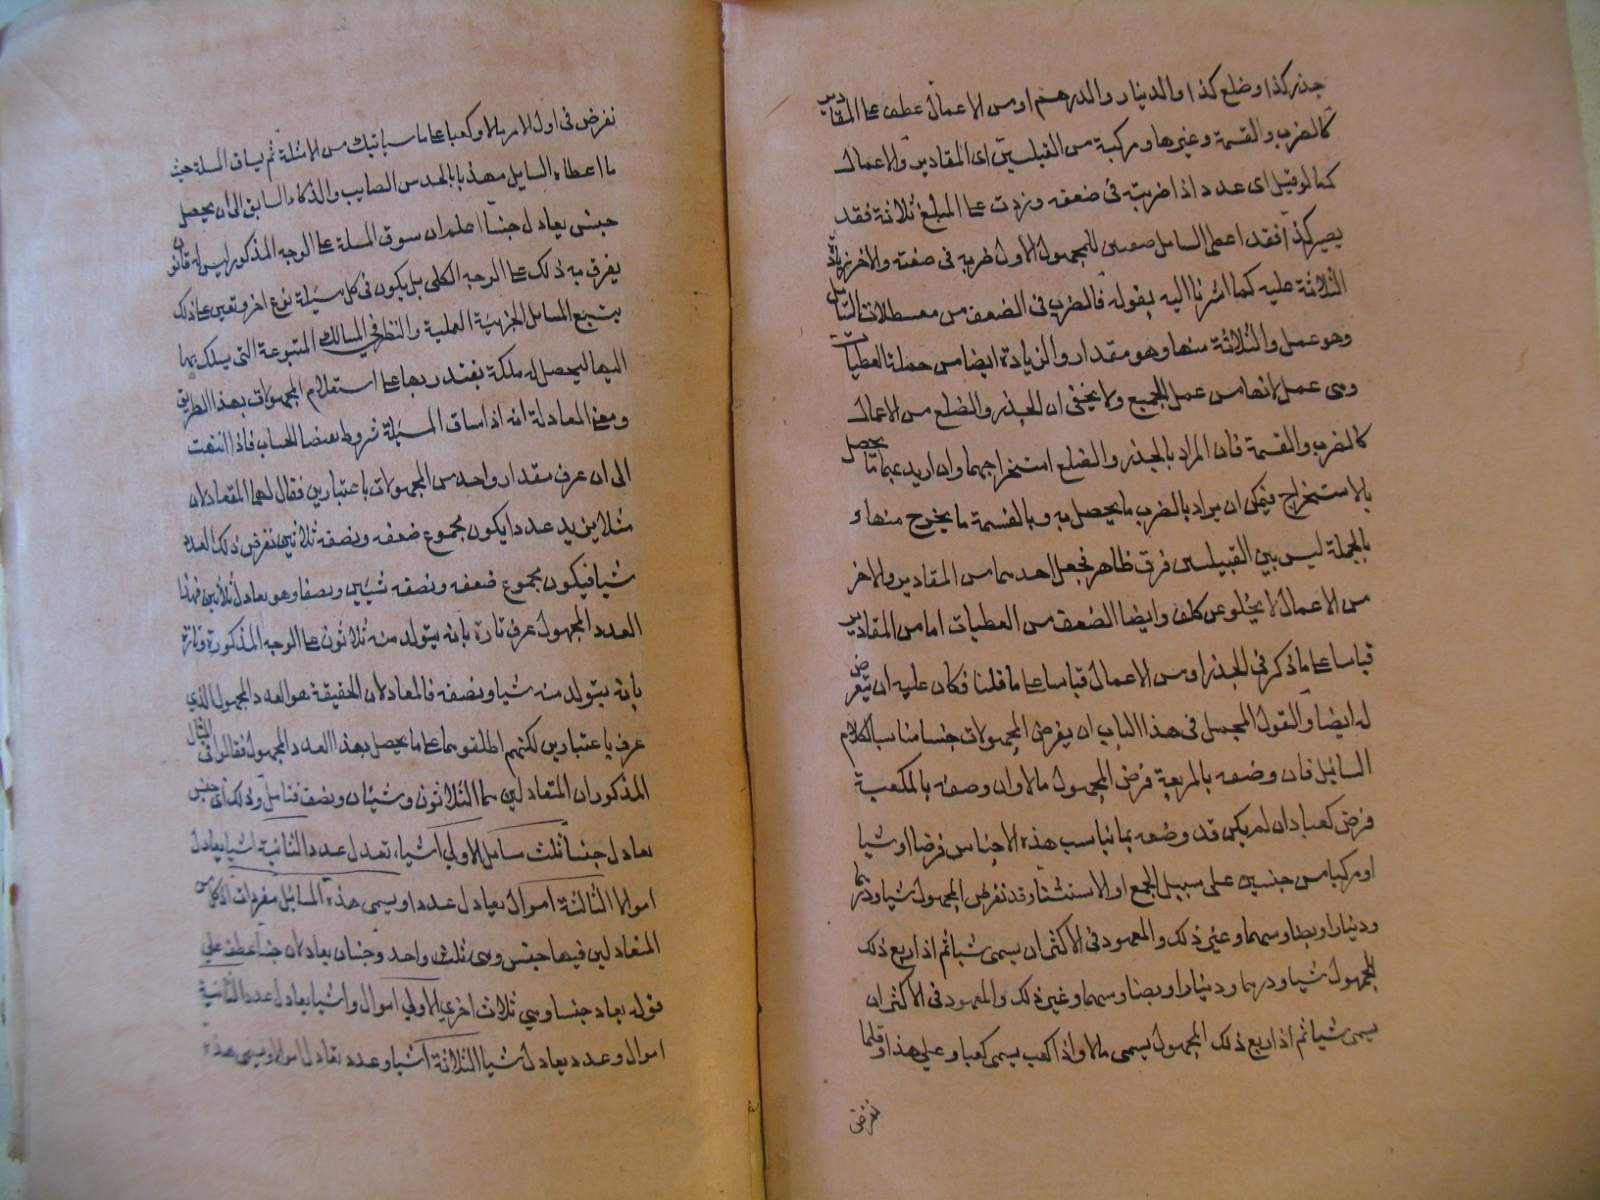 جذر كذا وضلع كذا والدينار والدرهم او من الاعمال عطف على المقادير
كالضرب والقسمة وغيرها ومركبة من القبيلين اى المقادير والاعمال
كما لو قيل اى عدد اذا ضربته فى ضعفه وزدت على المبلغ ثلاثة فقد
يصير كذا فقد اعطى السايل للمجهول الاول ضربه فى ضعفه والاخر زيادة
الثلاثة عليه كما اشرنا اليه بقوله فالضرب فى الضعف من السايل
وهو عمل والثلاثة منها وهو مقدار والزيادة ايضا من جملة العطيات
وهى عمل لانها من عمل الجمع ولا يخفى ان الجذر والضلع من الاعمال
كالضرب والقسمة فان المراد بالجذر والضلع استخراجهما وان اريد بهما ما يحصل
بالاستخراج فيمكن ان يراد بالضرب ما يحصل به وبالقسمة ما يخرج منها و
بالجملة ليس بين القبيلين فرق ظاهر فجعل احدهما من المقادير والاخر
من الاعمال لا يخلو عن كلف وايضا الضعف من العطيات اما من المقادير
قياسا على ما ذكر فى الجذر او من الاعمال قياسا على ما قلنا فكان عليه ان يتعرض
له ايضا والقول المجمل فى هذا الباب ان يفرض المجهولات جنسا مناسبا لكلام
السايل فان وصفه بالمربعية فرض المجهول مالا وان وصفه بالمكعبية
فرض كعبا وان لم يكن قد وصفه بما يناسب هذه الاجناس فرضا او شيا
او مركبا من جنسين على سبيل الجمع او الاستثنا وقد نفرض المجهول شيا ودرهما
ودينارا وبضا وسهما وغير ذلك والمعهود فى الاكثر ان يسمى شيا ثم اذا ربع ذلك
المجهول شيا ودرهما ودينارا وبضا وسهما وغير ذلك والمعهود فى الاكثر ان
يسمى شيا ثم اذا ربع ذلك المجهول يسمى مالا واذا كعب يسمى كعبا وعلى هذا وقلما
نفرض
نفرض فى اول الامر مالا او كعبا على ما سياتيك من الامثلة ثم يساق المسلة حيث
ما اعطاه السايل مهذبا بالحدس الصايب والذكاء السابق الى ان يحصل
جنس يعادل جنسا اعلم ان سوق المسلة على الوجه المذكور ليس له قانون
يعرف به ذلك على الوجه الكلى بل يكون فى كل مسيلة نوع اخر وتعين على ذلك
تتبع المسايل الجزيية العملية والنظر فى المسالك المتبوعة التى يسلك بها
اليها ليحصل له ملكة يقتدر بها على استعلام المجهولات بهذا الطريق
ومعنى المعادلة انه اذا ساق المسيلة الحساب فاذا انتهت
الى ان عرف مقدار واحد من المجهولات باعتبارين فقال لهما المتعادلان
مثلا يزيد عددا يكون مجموع ضعفه ونصفه ثلاثين نفرض ذلك العدد
شيا فيكون مجموع ضعفه ونصفه شيين ونصفا وهو يعادل ثلاثين فهذا
العدد المجهول عرف تارة بانه يتولد منه ثلاثون على الوجه المذكور وتارة
بانه يتولد منه شيا ونصفه فالمعادلان الحقيقة هو العدد المجهول الذى
عرف باعتبارين لكنهم اطلقوهما على ما يحصل بهذا العدد المجهول فقالوا فى المثال
المذكور ان المتعادلين هما الثلاثون وشيان ونصف فتامل وذلك اى جنس
يعادل جنسا ثلث مسايل الاولى اشياء تعدل عددا الثانية اشيا يعادل
اموالا الثالثة اموال يعادل عددا ويسمى هذه المسايل مفردات اذ كل من
المتعادلين فيها جنس وهى ثلث واحد وجنسان يعادلان جنسا عطف على
قوله يعادل جنسا وهي ثلاث اخرى الاولى اموال واشيا يعادل عددا الثانية
اموال وعدد يعادل شيا الثلاثة اشيا وعدد يعادل اموالا ويسمى هذه